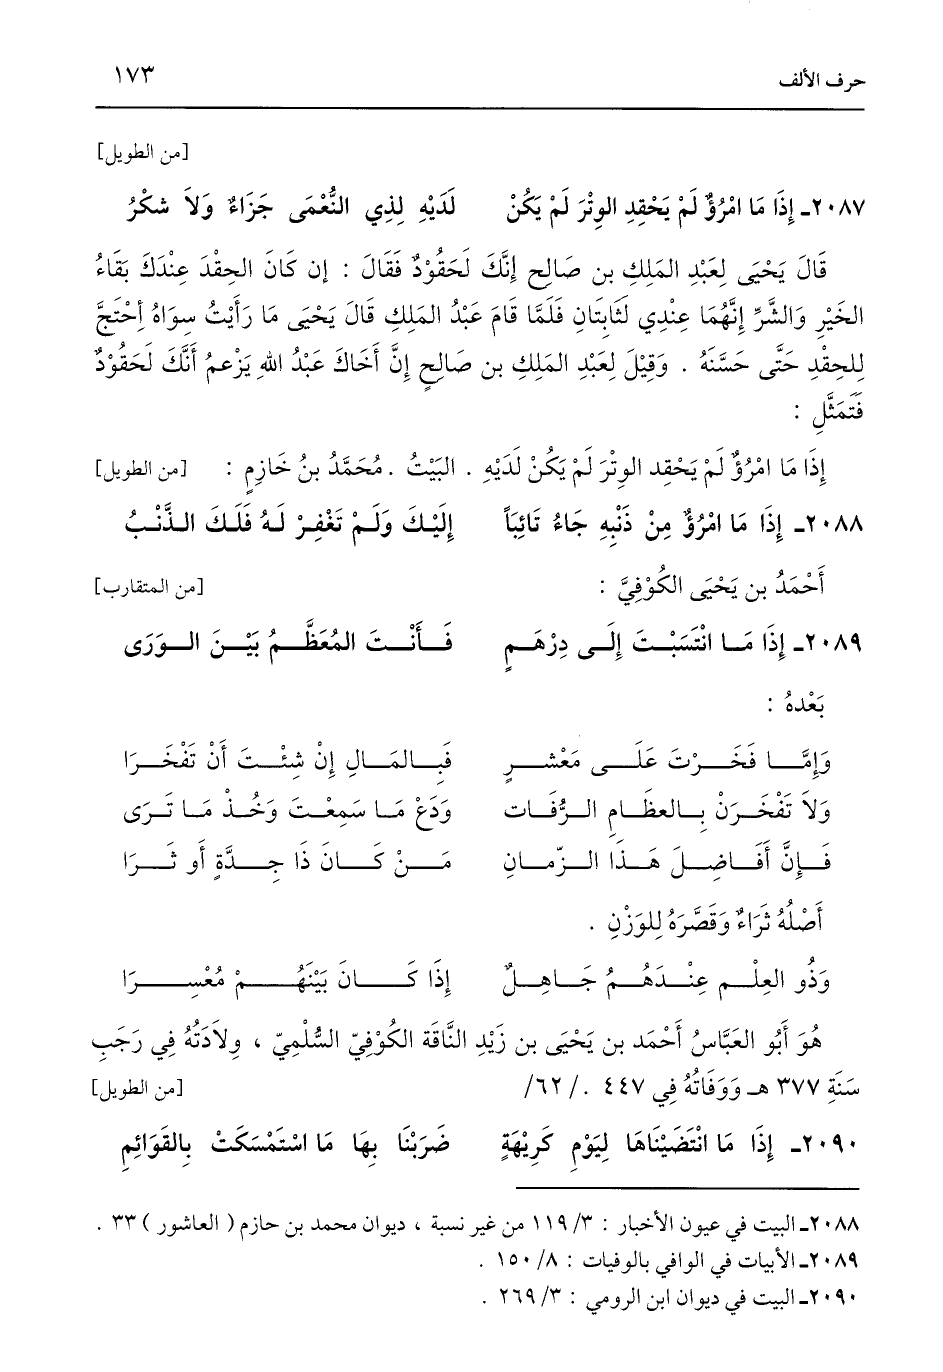 حرف الألف ١٧٣
[من الطويل]
٢٠٨٧ـ إِذَا مَا امْرُؤٌ لَمْ يَحْقِدِ الوِتْرَ لَمْ يَكُنْ لَدَيْهِ لِذِي النُّعْمَى جَزَاءٌ وَلاَ شكْرُ
قَالَ يَحْيَى لِعَبْدِ المَلِكِ بن صَالِح إِنَّكَ لَحَقُوْدٌ فَقَالَ : إن كَانَ الحِقْدَ عِنْدَكَ بَقَاءُ
الخَيْرِ وَالشَّرِّ إِنَّهُمَا عِنْدِي لَثَابتَانِ فَلَمَّا قَامَ عَبْدُ المَلِكِ قَالَ يَحْيَى مَا رَأَيْتُ سِوَاهُ أحْتَجَّ
لِلحِقْدِ حَتَّى حَسَّنَهُ . وَقِيْلَ لِعَبْدِ المَلِكِ بن صَالِحٍ إِنَّ أَخَاكَ عَبْدُ اللهِ يَزْعمُ أَنَّكَ لَحَقُوْدٌ
فَتَمَثَّلِ :
إِذَا مَا امْرُؤٌ لَمْ يَحْقِد الوِتْرَ لَمْ يَكُنْ لَدَيْهِ . البَيْتُ . مُحَمَّدُ بنُ خَازِمٍ : [من الطويل]
٢٠٨٨ـ إِذَا مَا امْرُؤٌ مِنْ ذَنْبِهِ جَاءُ تَائِبَاً إِلَيْكَ وَلَمْ تَغْفِرْ لَهُ فَلَكَ الذَّنْبُ
أَحْمَدُ بن يَحْيَى الكُوْفِيَّ : [من المتقارب]
٢٠٨٩ـ إِذَا مَا انْتَسَبْتَ إِلَى دِرْهَمٍ فَأَنْتَ المُعَظَّمُ بَيْنَ الوَرَى
بَعْدهُ :
وَإِمَّا فَخَرْتَ عَلَى مَعْشرٍ فَبِالمَالِ إِنْ شِئْتَ أَنْ تَفْخَرَا
وَلاَ تَفْخَرَنْ بِالعظَامِ الرُّفَات وَدَعْ مَا سَمِعْتَ وَخُذْ مَا تَرَى
فَإِنَّ أَفَاضِلَ هَذَا الزّمانِ مَنْ كَانَ ذَا جِدَّةٍ أو ثَرَا
أَصْلُهُ ثَرَاءٌ وَقَصَّرَهُ لِلوَزْنِ .
وَذُو العِلْمِ عِنْدَهُمُ جَاهِلٌ إِذَا كَانَ بَيْنَهُمْ مُعْسِرَا
هُوَ أَبُو العَبَّاسُ أَحْمَد بن يَحْيَى بن زَيْدِ النَّاقَة الكُوْفِيّ السُّلْمِيّ ، وِلاَدَتُهُ فِي رَجَبِ
سَنَةِ ٣٧٧ هـ وَوَفَاتُهُ فِي ٤٤٧ . /٦٢/ [من الطويل]
٢٠٩٠ـ إِذَا مَا انْتَضَيْنَاهَا لِيَوْمِ كَرِيْهَةٍ ضَرَبْنَا بِهَا مَا اسْتَمْسَكَتْ بِالقَوَائِمِ
٢٠٨٨ـ البيت في عيون الأخبار : ٣/ ١١٩ من غير نسبة ، ديوان محمد بن حازم ( العاشور ) ٣٣ .
٢٠٨٩ـ الأبيات في الوافي بالوفيات : ٨/ ١٥٠ .
٢٠٩٠ـ البيت في ديوان ابن الرومي : ٣/ ٢٦٩ .